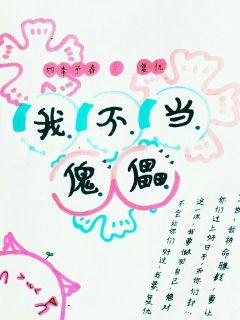 四季予春 复仇
我不当
傀儡
我拼命赚钱,要让
你们过上好日子,而你们却…
这一次,我要做回自己,绝对
不会让你们好过,我要,复仇